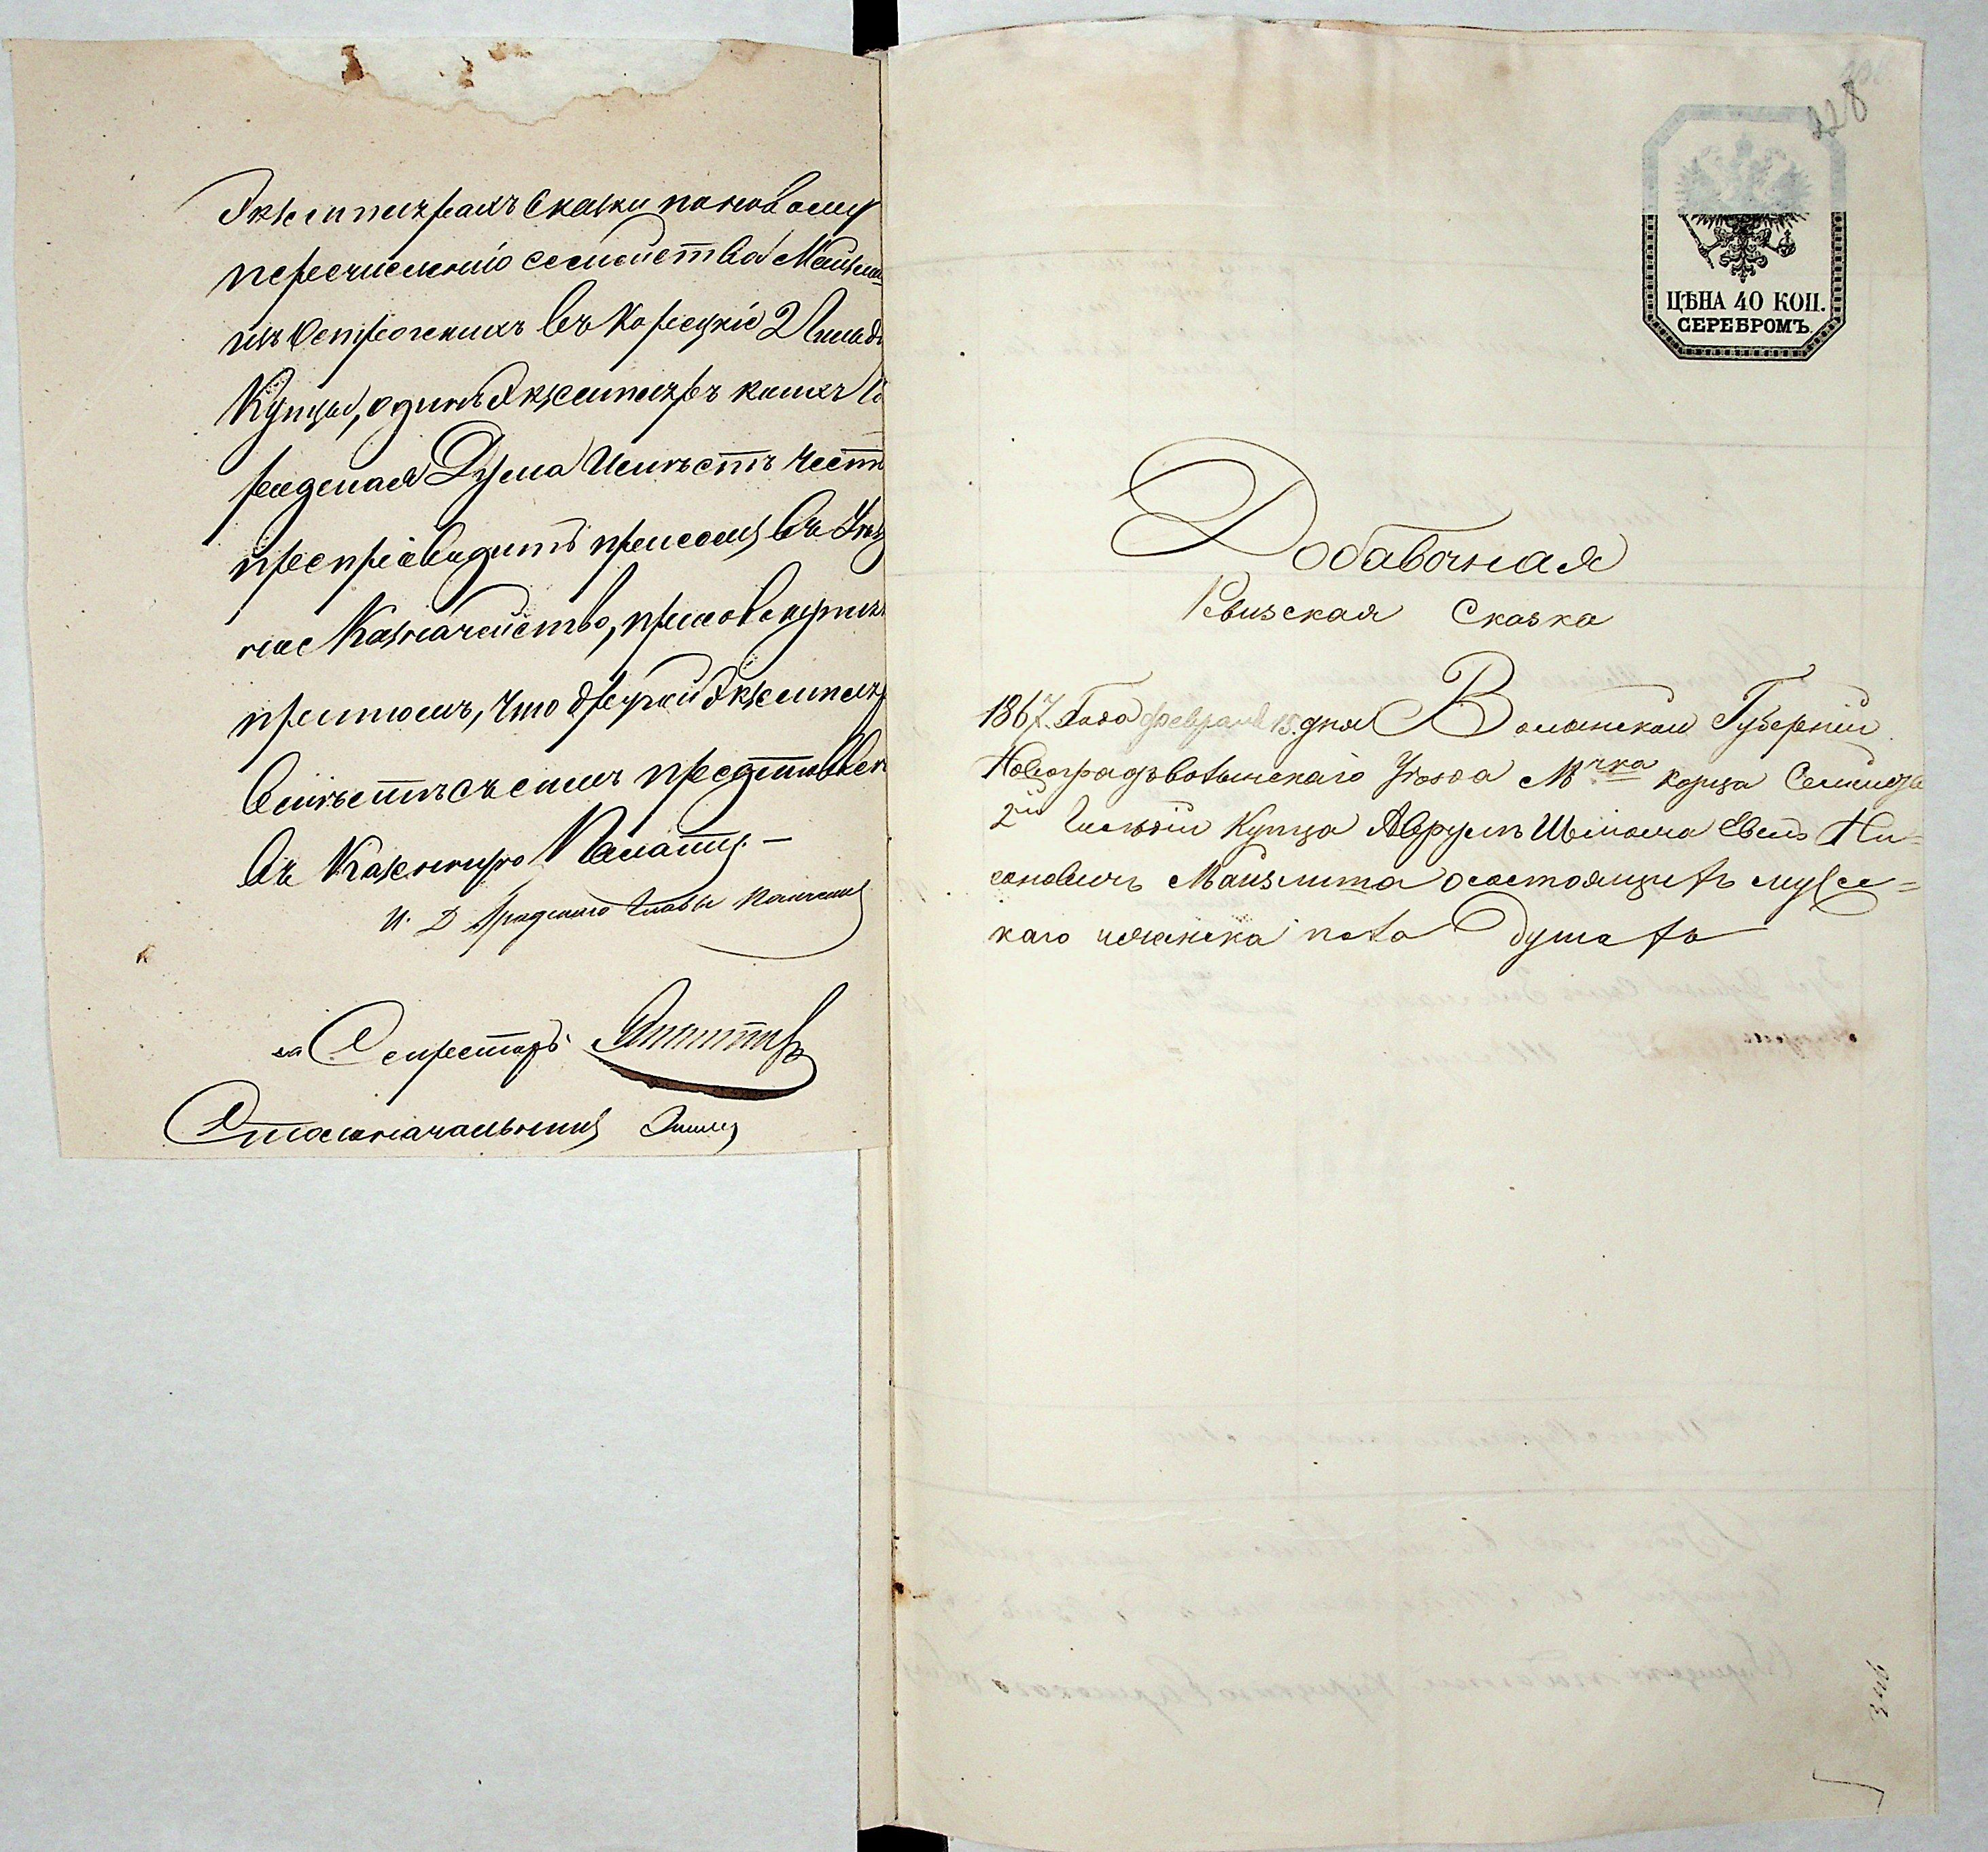 Экземплярахъ сказки по новому
перечисленію семейства Майзли
изъ Острогскихъ въ Корецкіе 2 Гильд
Купцы, одинъ Экземпляръ коихъ Го
родская Дума имѣетъ честь
препроводить при семъ въ Уѣзд
ное Казначейство, присовокупля
при томъ, что другой Экземпляр
вмѣстѣ съ симъ представлен
въ Казенную Палату. —
И. Д Градскаго Главы
Секретарь
Столоначальникъ
228
ЦѢНА 40 КОП.
СЕРЕБРОМЪ.
Добавочная
Ревизская Сказка
1867. Года февраля 15. дня Волынской Губерніи
Новоградъволынскаго Уѣзда М-чка Корца
2й Гильдіи Купца Аврумъ Шлиома Евель Ни-
сановичъ Майзлиша о состоящихъ мужес=
каго пола душахъ
346